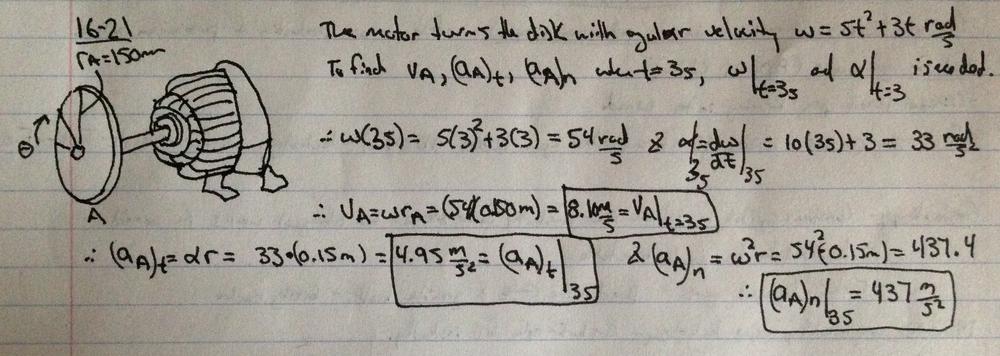 16-21
r_A = 150mm
The motor turns the disk with agular velocity ω = 5t² + 3t rad/s
To find v_A, (a_A)_t, (a_A)_n when t = 3s, ω|_t=3s ad α|_t=3 is needed.
∴ ω(3s) = 5(3)² + 3(3) = 54 rad/s & α|_3s = dω/dt|_3s = 10(3s) + 3 = 33 rad/s²
θ
A
∴ v_A = ωr_A = (54)(0.150m) = 8.10 m/s = v_A|_t=3s
∴ (a_A)_t = αr = 33·(0.15m) = 4.95 m/s² = (a_A)_t|_3s & (a_A)_n = ω²r = 54²(0.15m) = 437.4
∴ (a_A)_n|_3s = 437 m/s²